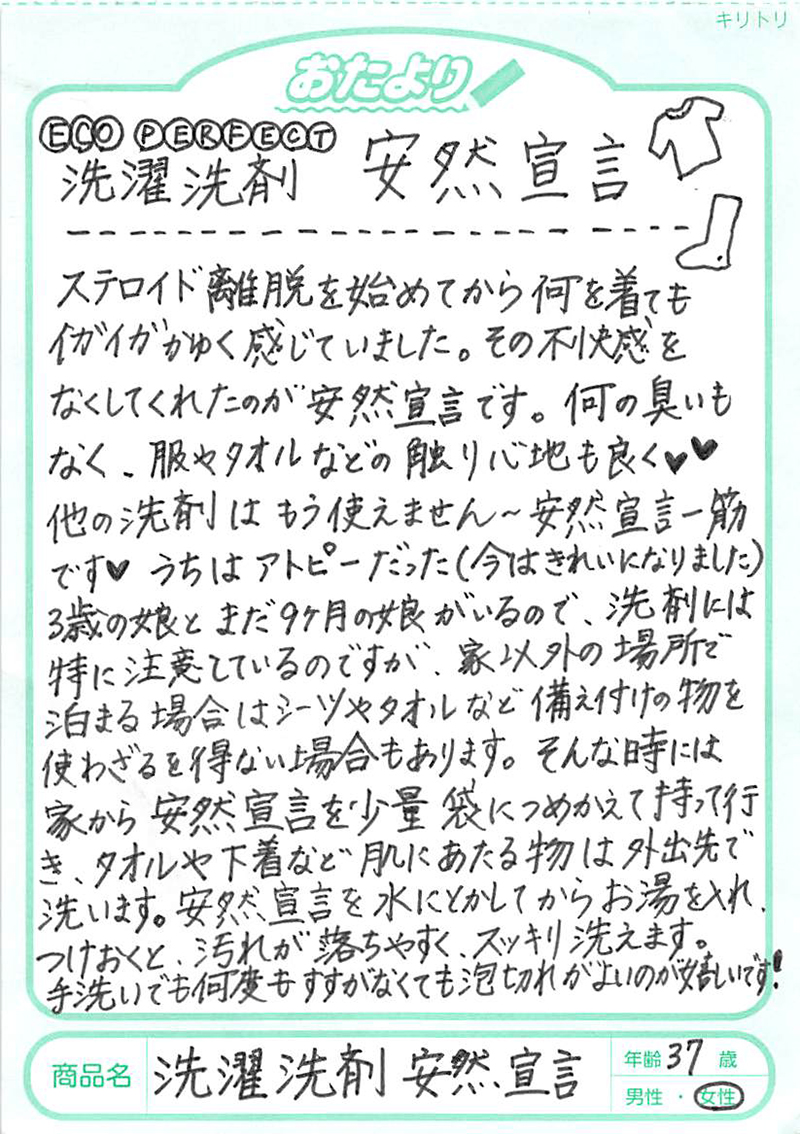 キリトリ
おたより
ECO PERFECT
洗濯洗剤 安然宣言
ステロイド離脱を始めてから何を着ても
イガイガかゆく感じていました。その不快感を
なくしてくれたのが安然宣言です。何の臭いも
なく、服やタオルなどの触り心地も良く♥♥
他の洗剤はもう使えません～安然宣言一筋
です♥ うちはアトピーだった(今はきれいになりました)
3歳の娘とまだ9ヶ月の娘がいるので、洗剤には
特に注意しているのですが、家以外の場所で
泊まる場合はシーツやタオルなど備え付けの物を
使わざるを得ない場合もあります。そんな時には
家から安然宣言を少量袋につめかえて持って行
き、タオルや下着など肌にあたる物は外出先で
洗います。安然宣言を水にとかしてからお湯を入れ、
つけおくと、汚れが落ちやすく、スッキリ洗えます。
手洗いでも何度もすすがなくても泡切れがよいのが嬉しいです!
商品名 洗濯洗剤 安然宣言 年齢 37 歳
男性・女性